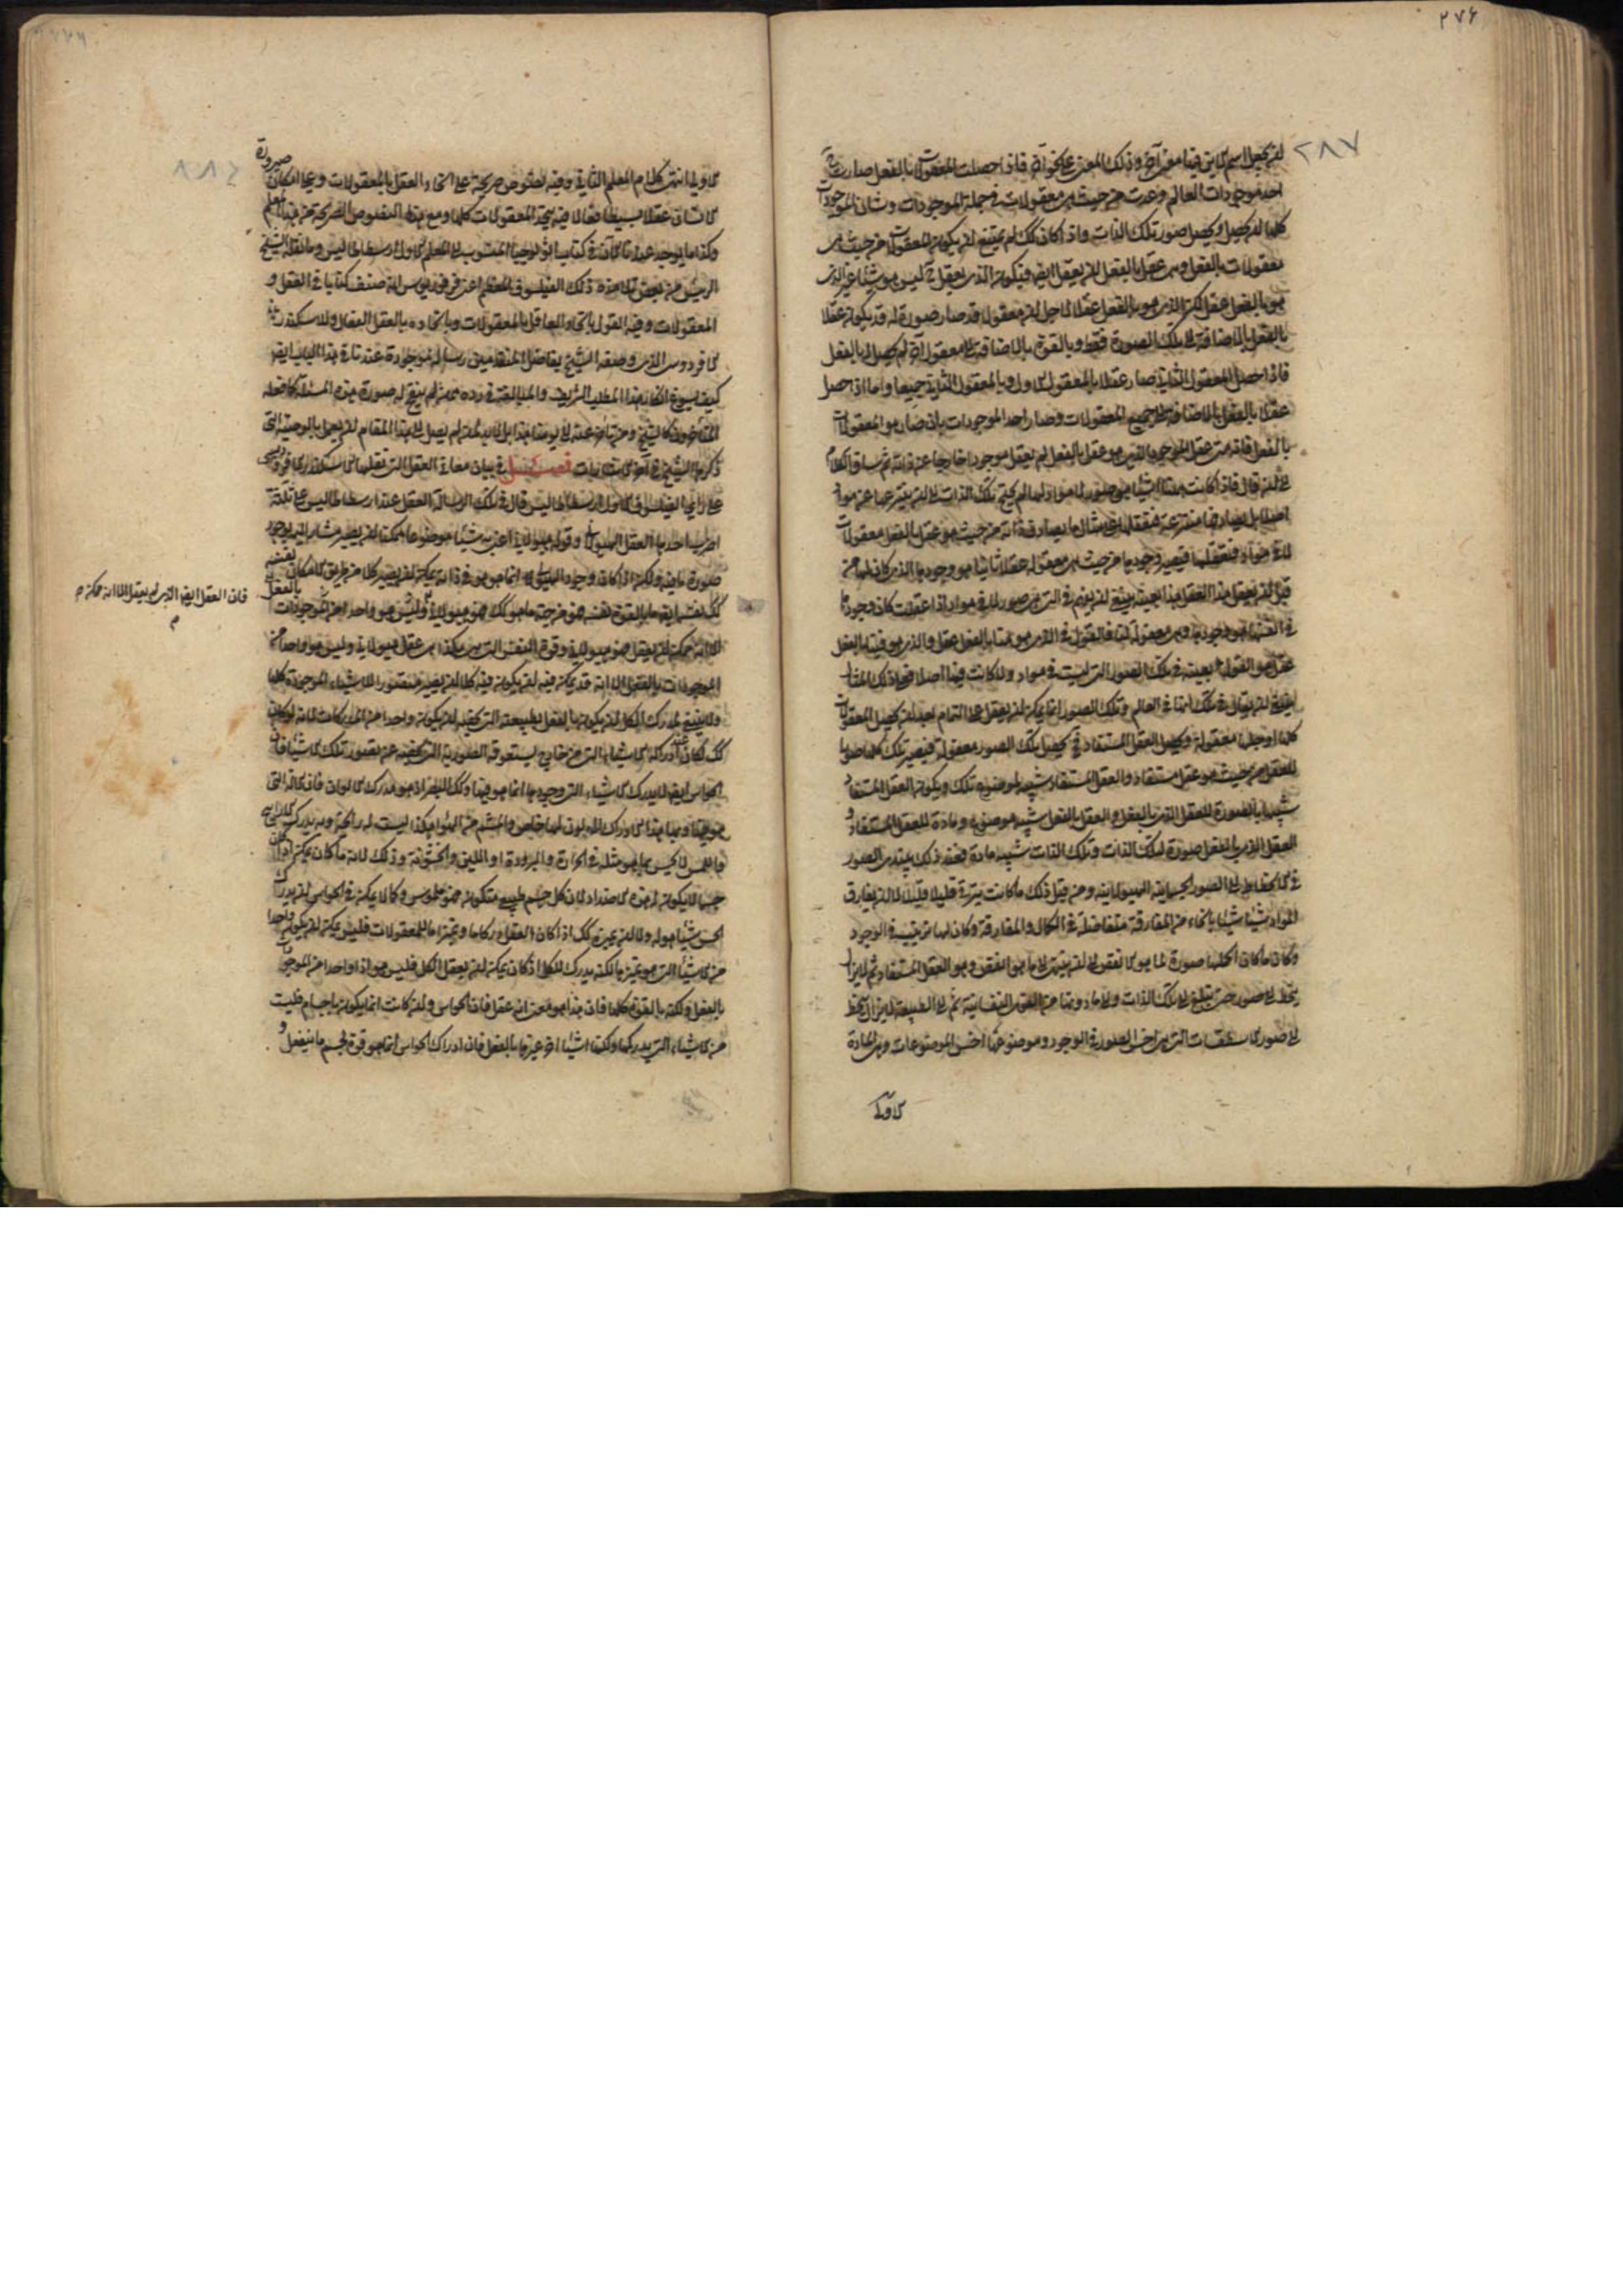 ٢٧٦
٢٨٧
لان يجعل اسم لاين فينا معنى آخر وذلك المعنى على نحو آخر فاذا حصلت المعقولات بالفعل صارت ح
احد موجودات العالم وعدت من حيث هي معقولات في جملة الموجودات وشان الموجودات
كلها ان تعقل وتحصل صور تلك الذات واذا كان كك لم يمتنع ان يكون المعقولات من حيث هي
معقولات بالفعل وهي عقل بالفعل ان يعقل ايض فيكون الذي يعقل ح ليس هو شيئا غير الذي
هو بالفعل عقل لكن الذي هو بالفعل عقل لاجل ان معقولا قد صار صورة له قد يكون عقلا
بالفعل بالاضافة الى تلك الصورة فقط وبالقوة بالاضافة الى معقول آخر لم يحصل له بالفعل
فاذا حصل المعقول الثاني صار عقلا بالمعقول الاول وبالمعقول الثاني جميعا واما اذا حصل
عقلا بالفعل بالاضافة الى جميع المعقولات وصار احد الموجودات بان صار هو المعقولات
بالفعل فانه متى عقل الموجود الذي هو عقل بالفعل لم يعقل موجودا خارجا عن ذاته ثم ساق الكلام
الى ان قال فاذا كانت هنا اشياء هي صور لا مواد لها لم يحتج تلك الذات الى ان ينتزعها عن مواد
اصلا بل يصادفها منتزعة فيعقلها على مثال ما يصادف ذاته من حيث هو عقل بالفعل معقولات
لا في مواد فيعقلها فيصير وجودها من حيث هي معقولة عقلا ثانيا هو وجودها الذي كان لها من
قبل ان يعقل هذا العقل وهذا بعينه ينبغي ان يفهم في التي هي صور لا في مواد اذا عقلت كان وجودها
في انفسها هو وجودها وهي معقولة لنا فالقول في الذي هو منا بالفعل عقل والذي هو فينا بالفعل
عقل هو القول بعينه في تلك الصور التي ليست في مواد ولا كانت فيها اصلا فعلى ذلك المثال
ينبغي ان يقال في تلك انها في العالم وتلك الصور انما يمكن ان يعقل على التمام بعد ان يحصل المعقولات
كلها او جلها معقولة ويحصل العقل المستفاد فح يحصل تلك الصور معقولة فيصير تلك كلها صورا
للعقل من حيث هو عقل مستفاد والعقل المستفاد شبيه لموضوع تلك ويكون العقل المستفاد
شبيها بالصورة للعقل الذي بالفعل والعقل بالفعل شبه موضوع ومادة للعقل المستفاد و
العقل الذي بالفعل صورة لتلك الذات وتلك الذات شبيه مادة فعند ذلك يبتدي الصور
في الانحطاط الى الصور الجسمانية الهيولانية ومن قبل ذلك ما كانت تترقى قليلا قليلا الى ان يفارق
المواد شيئا شيئا بانحاء من المفارقة متفاضلة في الكمال والمفارقة وكان لها ترتيب في الوجود
وكان ما كان اكملها صورة لما هو الانقص الى ان ينتهي الى ما هو انقص وهو العقل المستفاد ثم لا يزال
ينحط الى صور حتى تبلغ الى تلك الذات والى ما دونها من القوى النفسانية ثم الى الطبيعة ثم لا يزال ينحط
الى صور الاسطقسات التي هي اخس الصور في الوجود وموضوعها اخس الموضوعات وهي المادة
الاولى
الاولى انتهى كلام المعلم الثاني وفيه نصوص صريحة على اتحاد العقل بالمعقولات وعلى امكان صيرورة
الانسان عقلا بسيطا فعالا فيه يتحد المعقولات كلها ومع هذه النصوص الصريحة من هذا المعلم
وكذا ما يوجد عندنا الآن في كتاب اثولوجيا المنسوب الى المعلم الاول ارسطاطاليس وما نقله الشيخ
الرئيس من بعض تلامذة ذلك الفيلسوف المعظم اعني فرفوريوس انه صنف كتابا في العقل و
المعقولات وفيه القول باتحاد العاقل بالمعقولات وباتحاده بالعقل الفعال وللاسكندر
الافرودوسي الذي وصفه الشيخ بفاضل المتقدمين رسالة موجودة عندنا في هذا الباب ايض
كيف يسوغ انكار هذا المطلب الشريف والمبالغة في رده ممن لم ينقح له صورة هذه المسئلة كما فعله
المتأخرون كالشيخ ومن تأخر عنه الى يومنا هذا بل لابد لمن لم يصل الى هذا المقام ان يعمل بالوصية التي
ذكرها الشيخ في آخر الاشارات فصل في بيان معاني العقل التي نقلها الاسكندر الافروديسي
على راي الفيلسوف الاول ارسطاطاليس قال في تلك الرسالة العقل عند ارسطاطاليس على ثلثة
اضرب احدها العقل الهيولاني وقوله هيولاني اعني به شيئا موضوعا ممكنا ان يصير مشارا اليه بوجود
صورة ما فيه ولكن اذ كان وجود الهيولى انما هو في ذاته يمكن ان يصير كلا من طريق الامكان نفسه
كك نفسه ايض ما بالقوة نفسه فهو من جهة ما هو كك هو هيولاني وليس هو واحدا من الموجودات بالفعل
فان العقل ايض الذي لم يعقل الا انه ممكن م
الا انه ممكن ان يعقل فهو هيولاني وقوة النفس التي هي هكذا هي عقل هيولاني وليس هو واحدا من
الموجودات بالفعل الا انه قد يمكن فيه ان يكون فيه كلا ان يصير متصورا للاشياء الموجودة كلها
ولا ينبغي لمدرك الكل ان يكون بالفعل بطبيعته التي تخصه ان يكون واحدا من المدركات لانه لو كان
كك لكان عند ادراكه الاشياء التي من خارج ليستعوقه الصورة التي تخصه عن تصور تلك الاشياء فان
الحواس ايض لا يدرك الاشياء التي وجودها انما هو فيها وكك البصر اذ هو مدرك الالوان فان الآلة التي
هو فيها وبها هذا الادراك لا لون لها خاص والشم من الهواء وهكذا ليست له رائحة وبه يدرك الاراييح
واللمس لا يحس بما هو مثله في الحرارة والبرودة او اللين والخشونة وذلك لانه ما كان يمكن اذ كان
جسما لا يكون له هذه الاضداد لان كل جسم طبيعي متكون فهو ملموس وكما لا يمكن في الحواس ان يدرك
الحس شيئا هو له ولا ان يميزه كك اذا كان العقل دركا ما وتميزا ما للمعقولات فليس يمكن ان يكون واحدا
من الاشياء التي هو يميزها لكنه يدرك للكل اذ كان يمكن ان يعقل الكل فليس هو اذا واحدا من الموجودات
بالفعل ولكنه بالقوة كلها فان هذا هو معنى انه عقل فان الحواس وان كانت انما يكون باجسام فليست
هي الاشياء التي يدركها ولكنها اشياء اخر غيرها بالفعل فان ادراك الحواس انما هو قوة لجسم ما ينفعل و